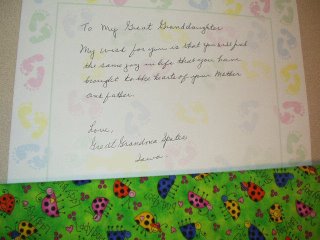 To My Great Granddaughter
My wish for you is that you will find
the same joy in life that you have
brought to the hearts of your Mother
and father.
Love,
Great Grandma
Iowa